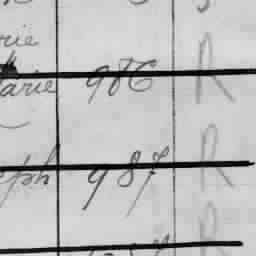 rie
arie 986 R
eph 987 R
R